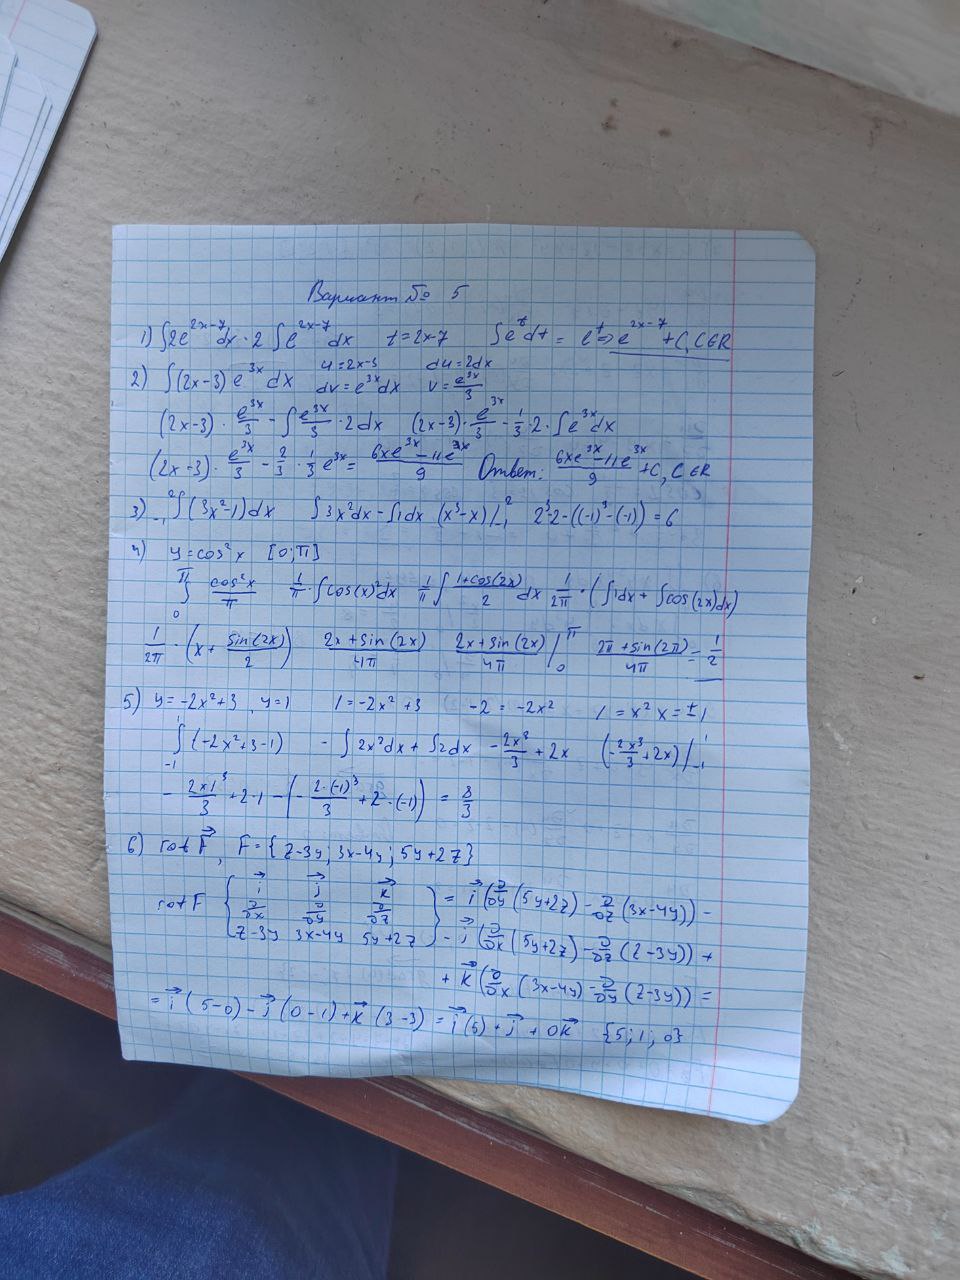 Вариант № 5
1) ∫2e^{2x-7}dx · 2 ∫e^{2x-7}dx t=2x-7 ∫e^t dt = e^t => e^{2x-7}+C, C∈R
2) ∫(2x-3) e^{3x} dx u=2x-3 du=2dx
dv=e^{3x}dx v=e^{3x}/3
(2x-3)·e^{3x}/3 - ∫e^{3x}/3 ·2dx (2x-3)·e^{3x}/3 - 1/3·2·∫e^{3x}dx
(2x-3)·e^{3x}/3 - 2/3·1/3 e^{3x} = (6xe^{3x} - 11e^{3x})/9 Ответ: (6xe^{3x} - 11e^{3x})/9 +C, C∈R
3) ₋₁²∫(3x²-1)dx ∫3x²dx - ∫1dx (x³-x)|₋₁² 2³-2-((-1)³-(-1))=6
4) y=cos²x [0;π]
∫₀^π cos²x/π 1/π·∫cos(x)²dx 1/π ∫(1+cos(2x))/2 dx 1/2π·(∫1dx+∫cos(2x)dx)
1/2π·(x+sin(2x)/2) (2x+sin(2x))/4π (2x+sin(2x))/4π |₀^π (2π+sin(2π))/4π = 1/2
5) y=-2x²+3, y=1 1=-2x²+3 -2=-2x² 1=x² x=±1
∫₋₁¹(-2x²+3-1) -∫2x²dx+∫2dx -2x³/3+2x (-2x³/3+2x)|₋₁¹
-2×1³/3+2·1-(-2·(-1)³/3+2·(-1)) = 8/3
6) rot F⃗, F={z-3y; 3x-4y; 5y+2z}
rot F { i⃗ j⃗ k⃗ } = i⃗(∂/∂y(5y+2z)-∂/∂z(3x-4y)) -
∂/∂x ∂/∂y ∂/∂z
z-3y 3x-4y 5y+2z - j⃗(∂/∂x(5y+2z)-∂/∂z(z-3y)) +
+ k⃗(∂/∂x(3x-4y)-∂/∂y(z-3y)) =
= i⃗(5-0)-j⃗(0-1)+k⃗(3-3) = i⃗(5)+j⃗+0k⃗ {5; 1; 0}